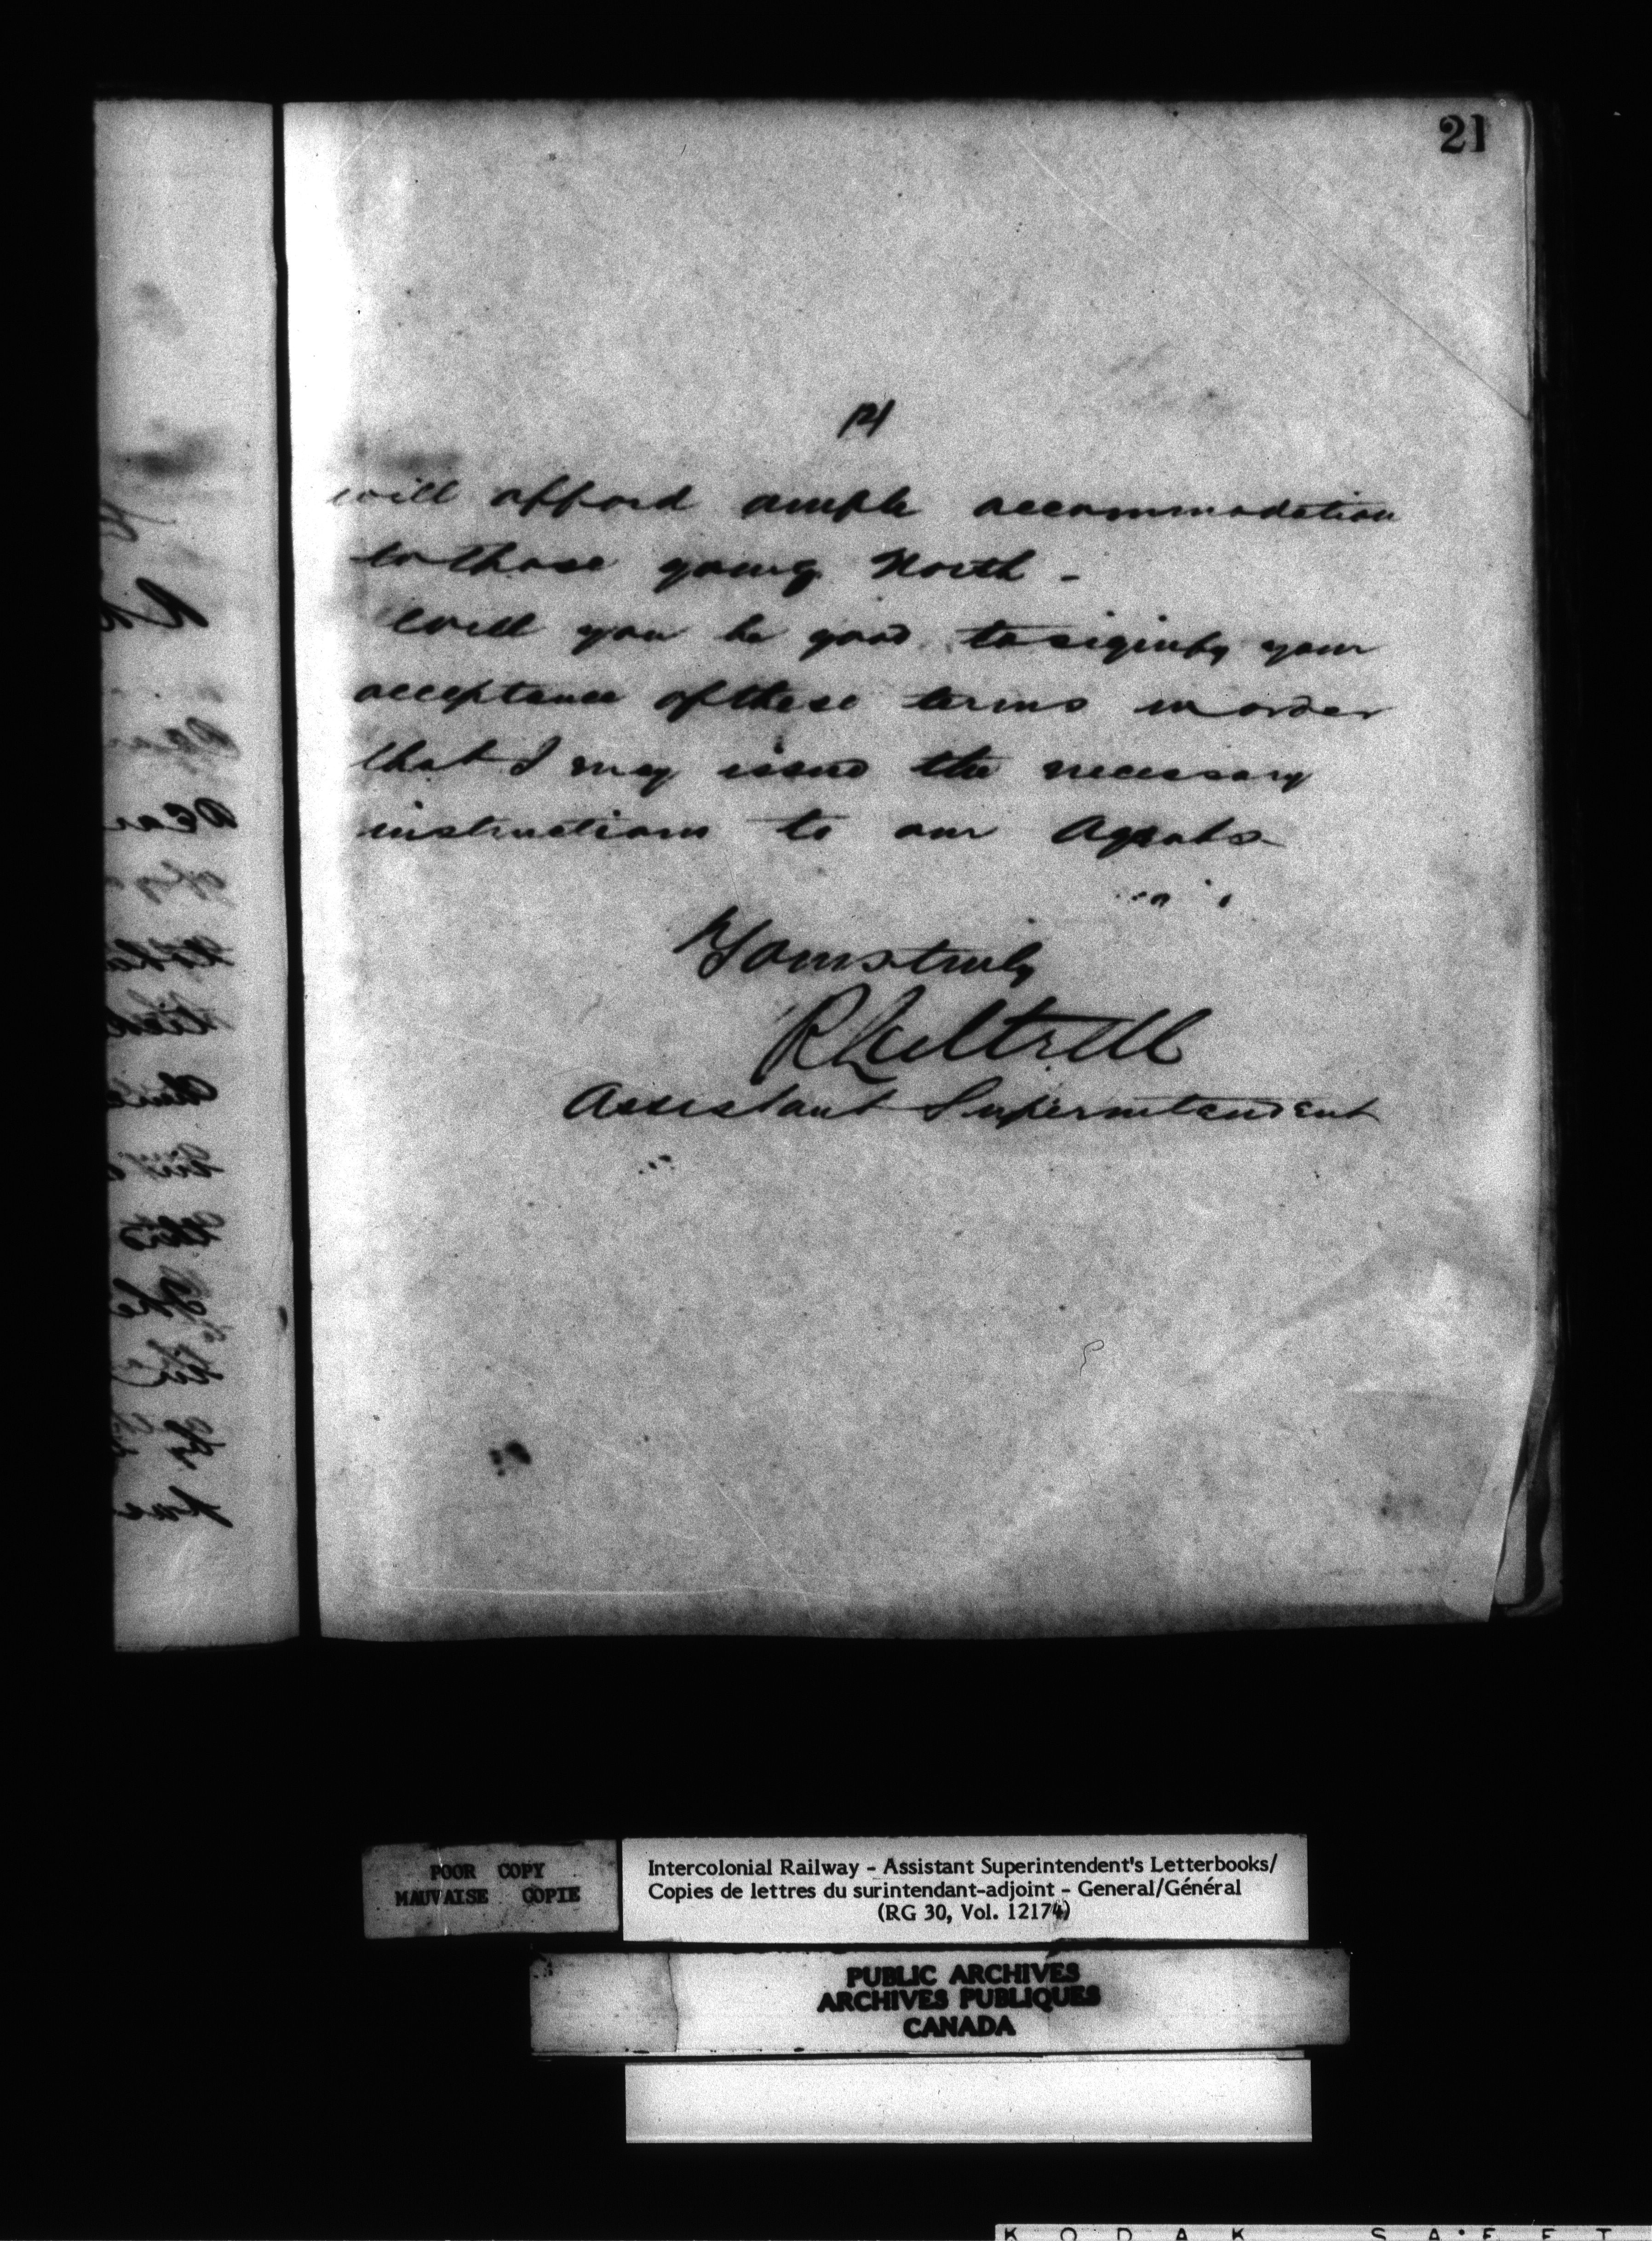 21
will afford ample accommodation
to those going North -
Will you be good to signify your
acceptance of these terms in order
that I may issue the necessary
instructions to our Agents
Yours truly
Assistant Superintendent
POOR COPY
MAUVAISE COPIE
Intercolonial Railway - Assistant Superintendent's Letterbooks/
Copies de lettres du surintendant-adjoint - General/Général
(RG 30, Vol. 12174)
PUBLIC ARCHIVES
ARCHIVES PUBLIQUES
CANADA
KODAK SAFET